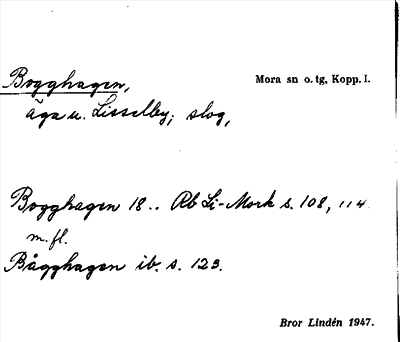 Bogghagen,
Mora sn o. tg, Kopp. l.
äga u. Lisselby; slog,
Bogghagen 18 .. Rb Li-Mork s. 108, 114
m. fl.
Bågghagen ib. s. 123.
Bror Lindén 1947.